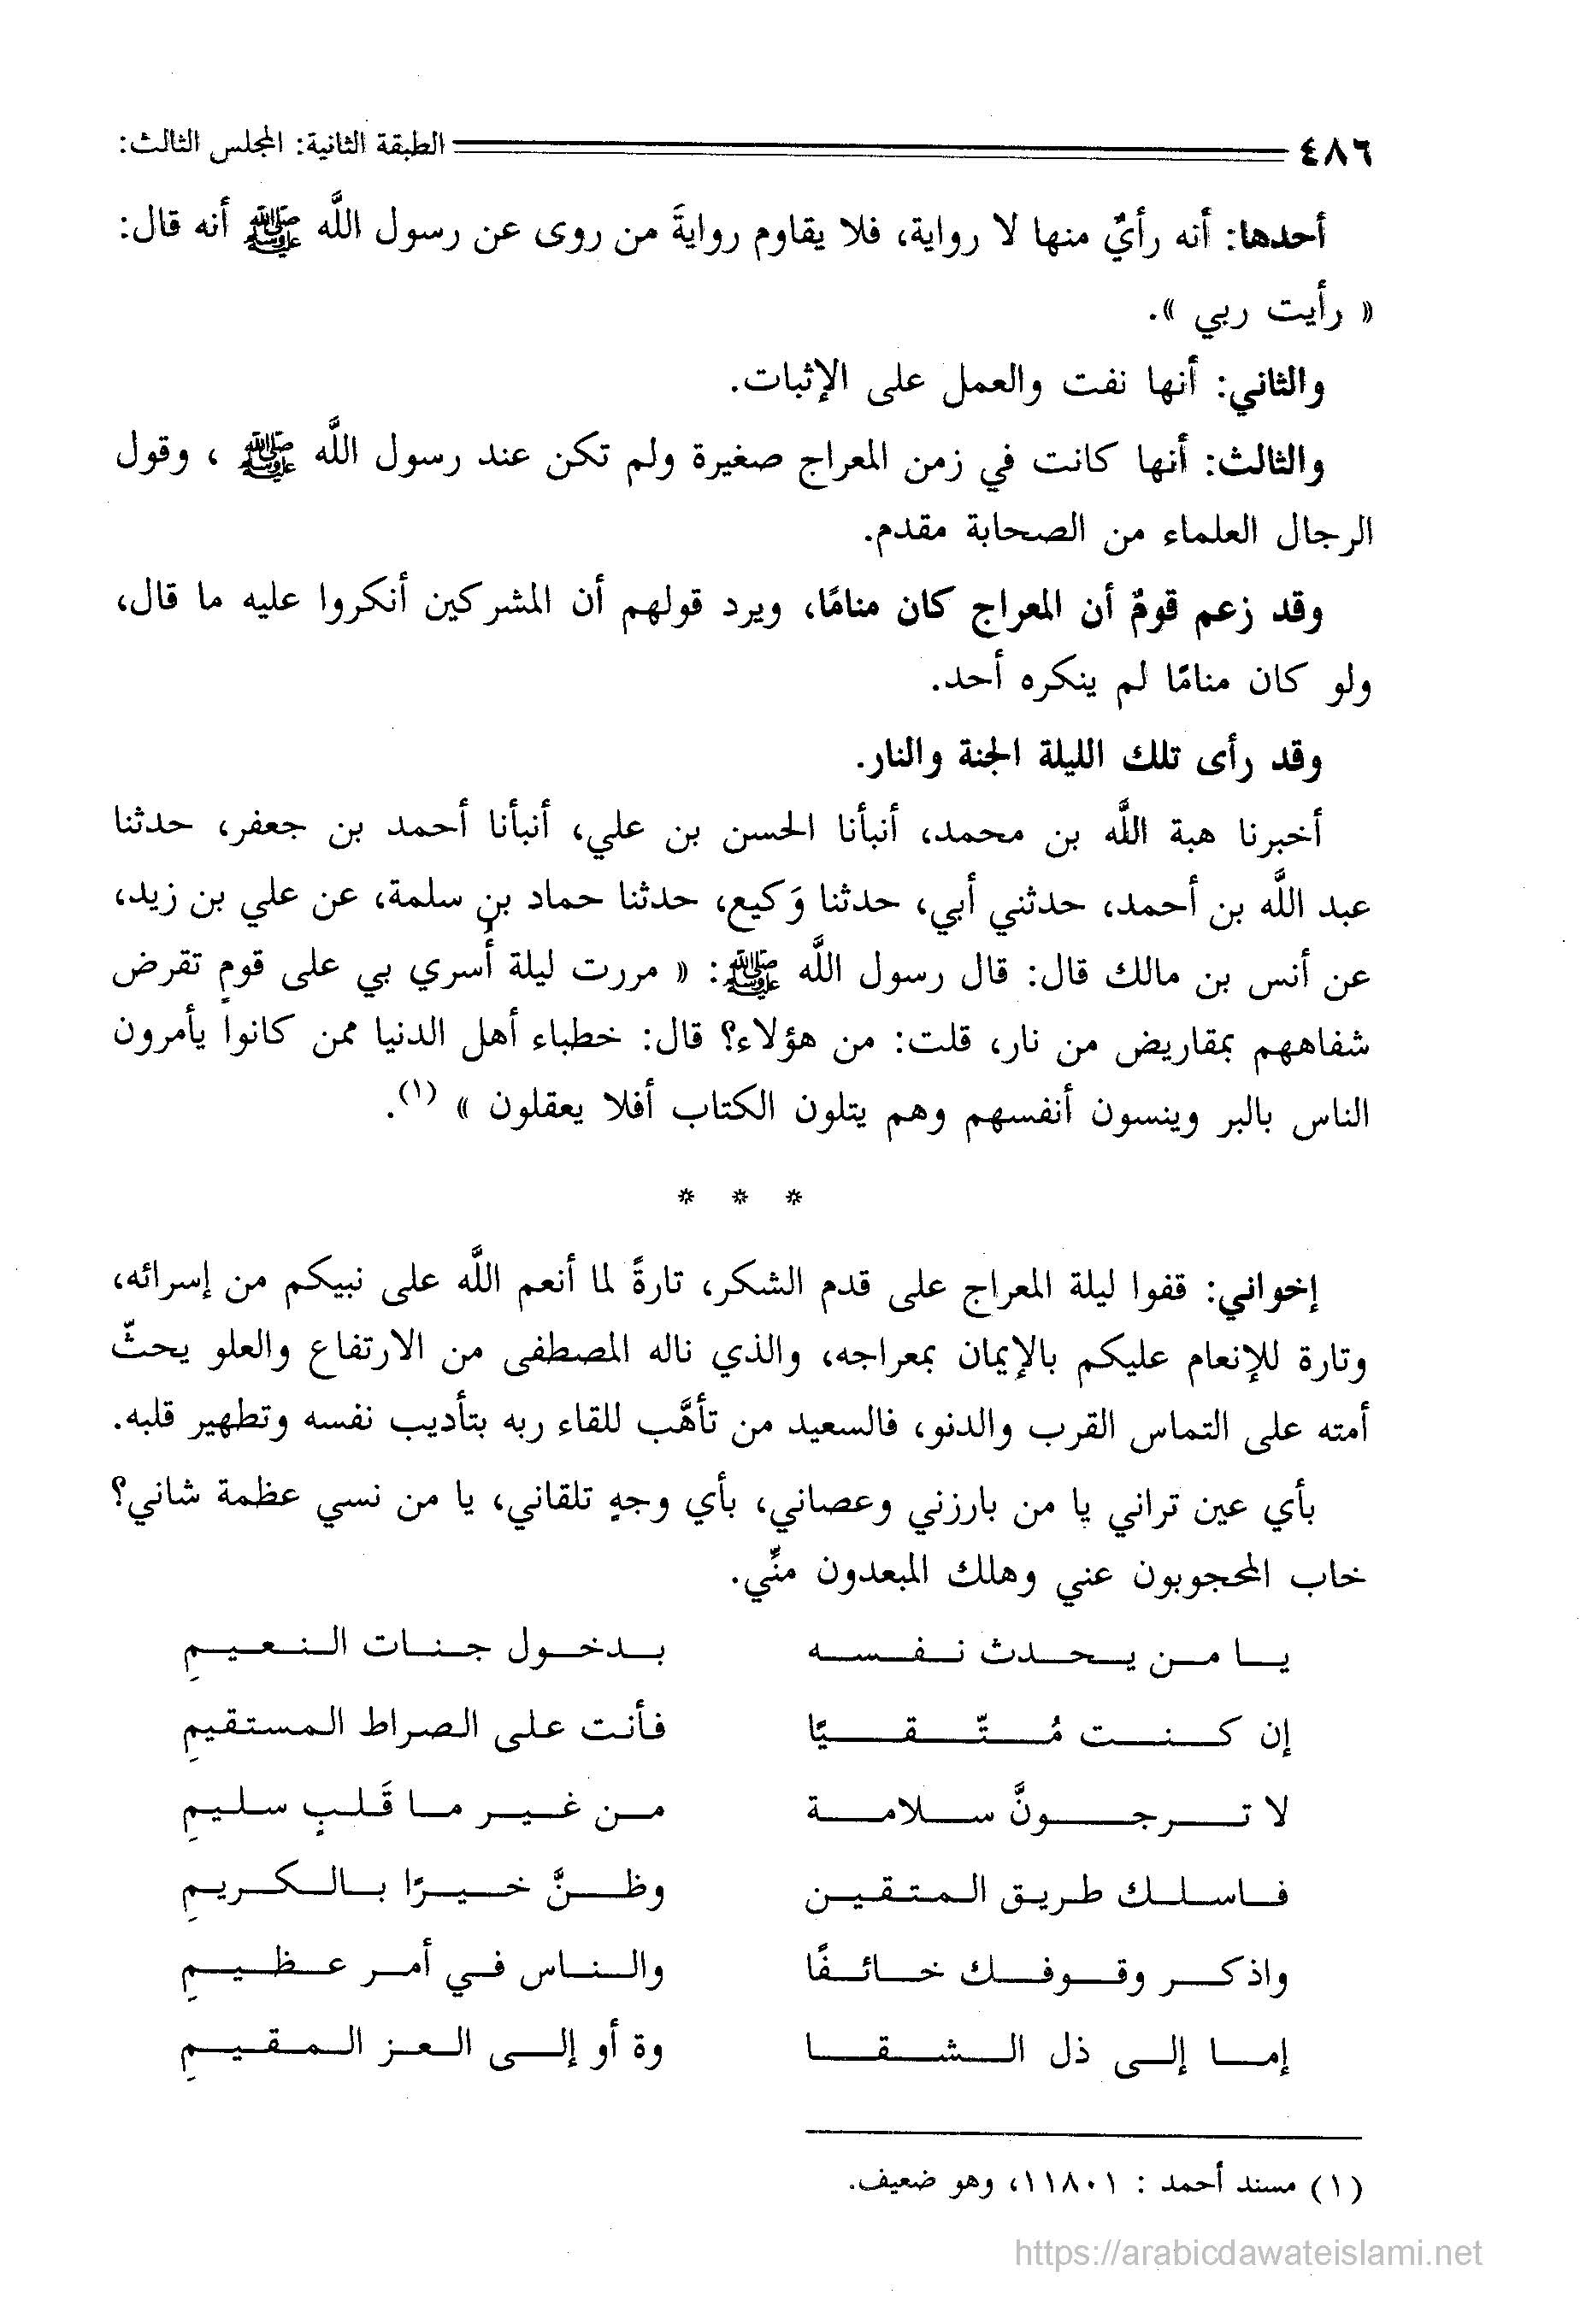 ٤٨٦ الطبقة الثانية: المجلس الثالث:
أحدها: أنه رأيٌ منها لا رواية، فلا يقاوم روايةَ من روى عن رسول اللَّه ﷺ أنه قال:
« رأيت ربي ».
والثاني: أنها نفت والعمل على الإثبات.
والثالث: أنها كانت في زمن المعراج صغيرة ولم تكن عند رسول اللَّه ﷺ ، وقول
الرجال العلماء من الصحابة مقدم.
وقد زعم قومٌ أن المعراج كان منامًا، ويرد قولهم أن المشركين أنكروا عليه ما قال،
ولو كان منامًا لم ينكره أحد.
وقد رأى تلك الليلة الجنة والنار.
أخبرنا هبة اللَّه بن محمد، أنبأنا الحسن بن علي، أنبأنا أحمد بن جعفر، حدثنا
عبد اللَّه بن أحمد، حدثني أبي، حدثنا وَكيع، حدثنا حماد بن سلمة، عن علي بن زيد،
عن أنس بن مالك قال: قال رسول اللَّه ﷺ: « مررت ليلة أُسري بي على قومٍ تقرض
شفاههم بمقاريض من نار، قلت: من هؤلاء؟ قال: خطباء أهل الدنيا ممن كانوا يأمرون
الناس بالبر وينسون أنفسهم وهم يتلون الكتاب أفلا يعقلون » (١).
* * *
إخواني: قفوا ليلة المعراج على قدم الشكر، تارةً لما أنعم اللَّه على نبيكم من إسرائه،
وتارة للإنعام عليكم بالإيمان بمعراجه، والذي ناله المصطفى من الارتفاع والعلو يحثّ
أمته على التماس القرب والدنو، فالسعيد من تأهَّب للقاء ربه بتأديب نفسه وتطهير قلبه.
بأي عين تراني يا من بارزني وعصاني، بأي وجهٍ تلقاني، يا من نسي عظمة شاني؟
خاب المحجوبون عني وهلك المبعدون منِّي.
يا من يحدث نفسه بدخول جنات النعيمِ
إن كنت مُتّقيًا فأنت على الصراط المستقيمِ
لا ترجونَّ سلامة من غير ما قَلبٍ سليمِ
فاسلك طريق المتقين وظنَّ خيرًا بالكريمِ
واذكر وقوفك خائفًا والناس في أمر عظيمِ
إما إلى ذل الشقا وة أو إلى العز المقيمِ
(١) مسند أحمد : ١١٨٠١، وهو ضعيف.
https://arabicdawateislami.net